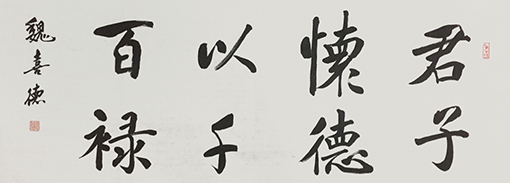 君子
懷德
以千
百禄
魏喜德